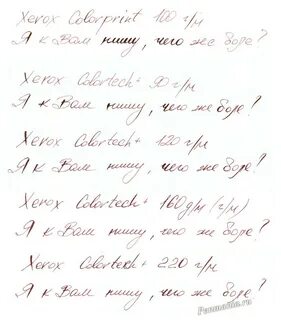 Xerox Colorprint 100 г/м
Я к Вам пишу, чего же боле?
Xerox Colortech+ 90 г/м
Я к Вам пишу, чего же боле?
Xerox Colortech+ 120 г/м
Я к Вам пишу, чего же боле?
Xerox Colortech+ 160 g/м (г/м)
Я к Вам пишу, чего же боле?
Xerox Colortech+ 220 г/м
Я к Вам пишу, чего же боле?